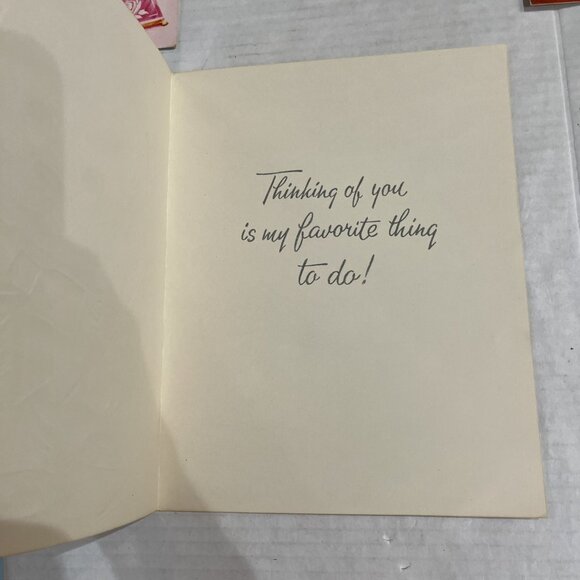 Thinking of you
is my favorite thing
to do!